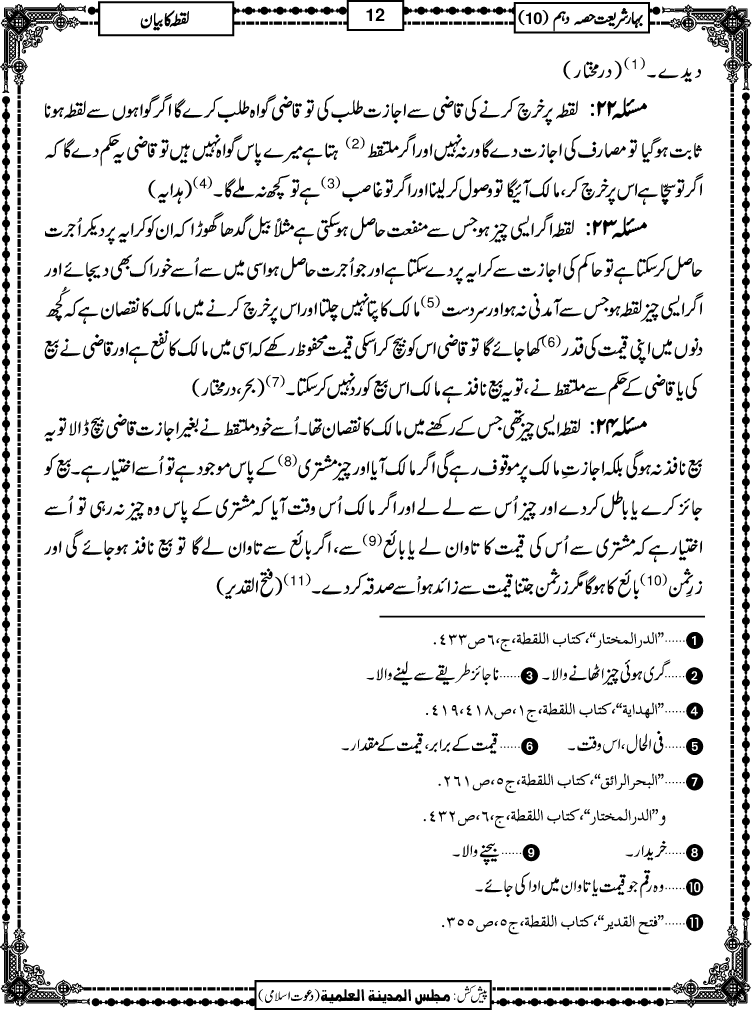 بہارِ شریعت حصہ دہم (10)
12
لقطہ کا بیان
دیدے۔(1) (درمختار)
مسئلہ ۲۲: لقطہ پر خرچ کرنے کی قاضی سے اجازت طلب کی تو قاضی گواہ طلب کرے گا اگر گواہوں سے لقطہ ہونا
ثابت ہوگیا تو مصارف کی اجازت دے گا ورنہ نہیں اور اگر ملتقط(2) کہتا ہے میرے پاس گواہ نہیں ہیں تو قاضی یہ حکم دے گا کہ
اگر تو سچا ہے اس پر خرچ کر، مالک آئیگا تو وصول کر لینا اور اگر تو غاصب(3) ہے تو کچھ نہ ملے گا۔(4) (ہدایہ)
مسئلہ ۲۳: لقطہ اگر ایسی چیز ہو جس سے منفعت حاصل ہوسکتی ہے مثلاً بیل گدھا گھوڑا کہ ان کو کرایہ پر دیکر اُجرت
حاصل کر سکتا ہے تو حاکم کی اجازت سے کرایہ پر دے سکتا ہے اور جو اُجرت حاصل ہو اسی میں سے اُسے خوراک بھی دیجائے اور
اگر ایسی چیز لقطہ ہو جس سے آمدنی نہ ہو اور سردست(5) مالک کا پتا نہیں چلتا اور اس پر خرچ کرنے میں مالک کا نقصان ہے کہ کُچھ
دنوں میں اپنی قیمت کی قدر(6) کھا جائے گا تو قاضی اس کو بیچ کر اسکی قیمت محفوظ رکھے کہ اسی میں مالک کا نفع ہے اور قاضی نے بیع
کی یا قاضی کے حکم سے ملتقط نے، تو یہ بیع نافذ ہے مالک اس بیع کو رد نہیں کرسکتا۔(7) (بحر، درمختار)
مسئلہ ۲۴: لقطہ ایسی چیز تھی جس کے رکھنے میں مالک کا نقصان تھا۔ اُسے خود ملتقط نے بغیر اجازت قاضی بیچ ڈالا تو یہ
بیع نافذ نہ ہوگی بلکہ اجازتِ مالک پر موقوف رہے گی اگر مالک آیا اور چیز مشتری(8) کے پاس موجود ہے تو اُسے اختیار ہے۔ بیع کو
جائز کرے یا باطل کردے اور چیز اُس سے لے لے اور اگر مالک اُس وقت آیا کہ مشتری کے پاس وہ چیز نہ رہی تو اُسے
اختیار ہے کہ مشتری سے اُس کی قیمت کا تاوان لے یا بائع(9) سے، اگر بائع سے تاوان لے گا تو بیع نافذ ہو جائے گی اور
زرِثمن(10) بائع کا ہوگا مگر زرثمن جتنا قیمت سے زائد ہو اُسے صدقہ کردے۔(11) (فتح القدیر)
1......”الدرالمختار“، کتاب اللقطة، ج٦، ص٤٣٣.
2......گری ہوئی چیز اٹھانے والا۔ 3......ناجائز طریقے سے لینے والا۔
4......”الهداية“، کتاب اللقطة، ج١، ص٤١٨، ٤١٩.
5......فی الحال، اس وقت۔ 6......قیمت کے برابر، قیمت کے مقدار۔
7......”البحرالرائق“، کتاب اللقطة، ج٥، ص٢٦١.
و”الدرالمختار“، کتاب اللقطة، ج٦، ص٤٣٢.
8......خریدار۔ 9......بیچنے والا۔
10......وہ رقم جو قیمت یا تاوان میں ادا کی جائے۔
11......”فتح القدیر“، کتاب اللقطة، ج٥، ص٣٥٥.
پیش کش: مجلس المدينة العلمية (دعوتِ اسلامی)